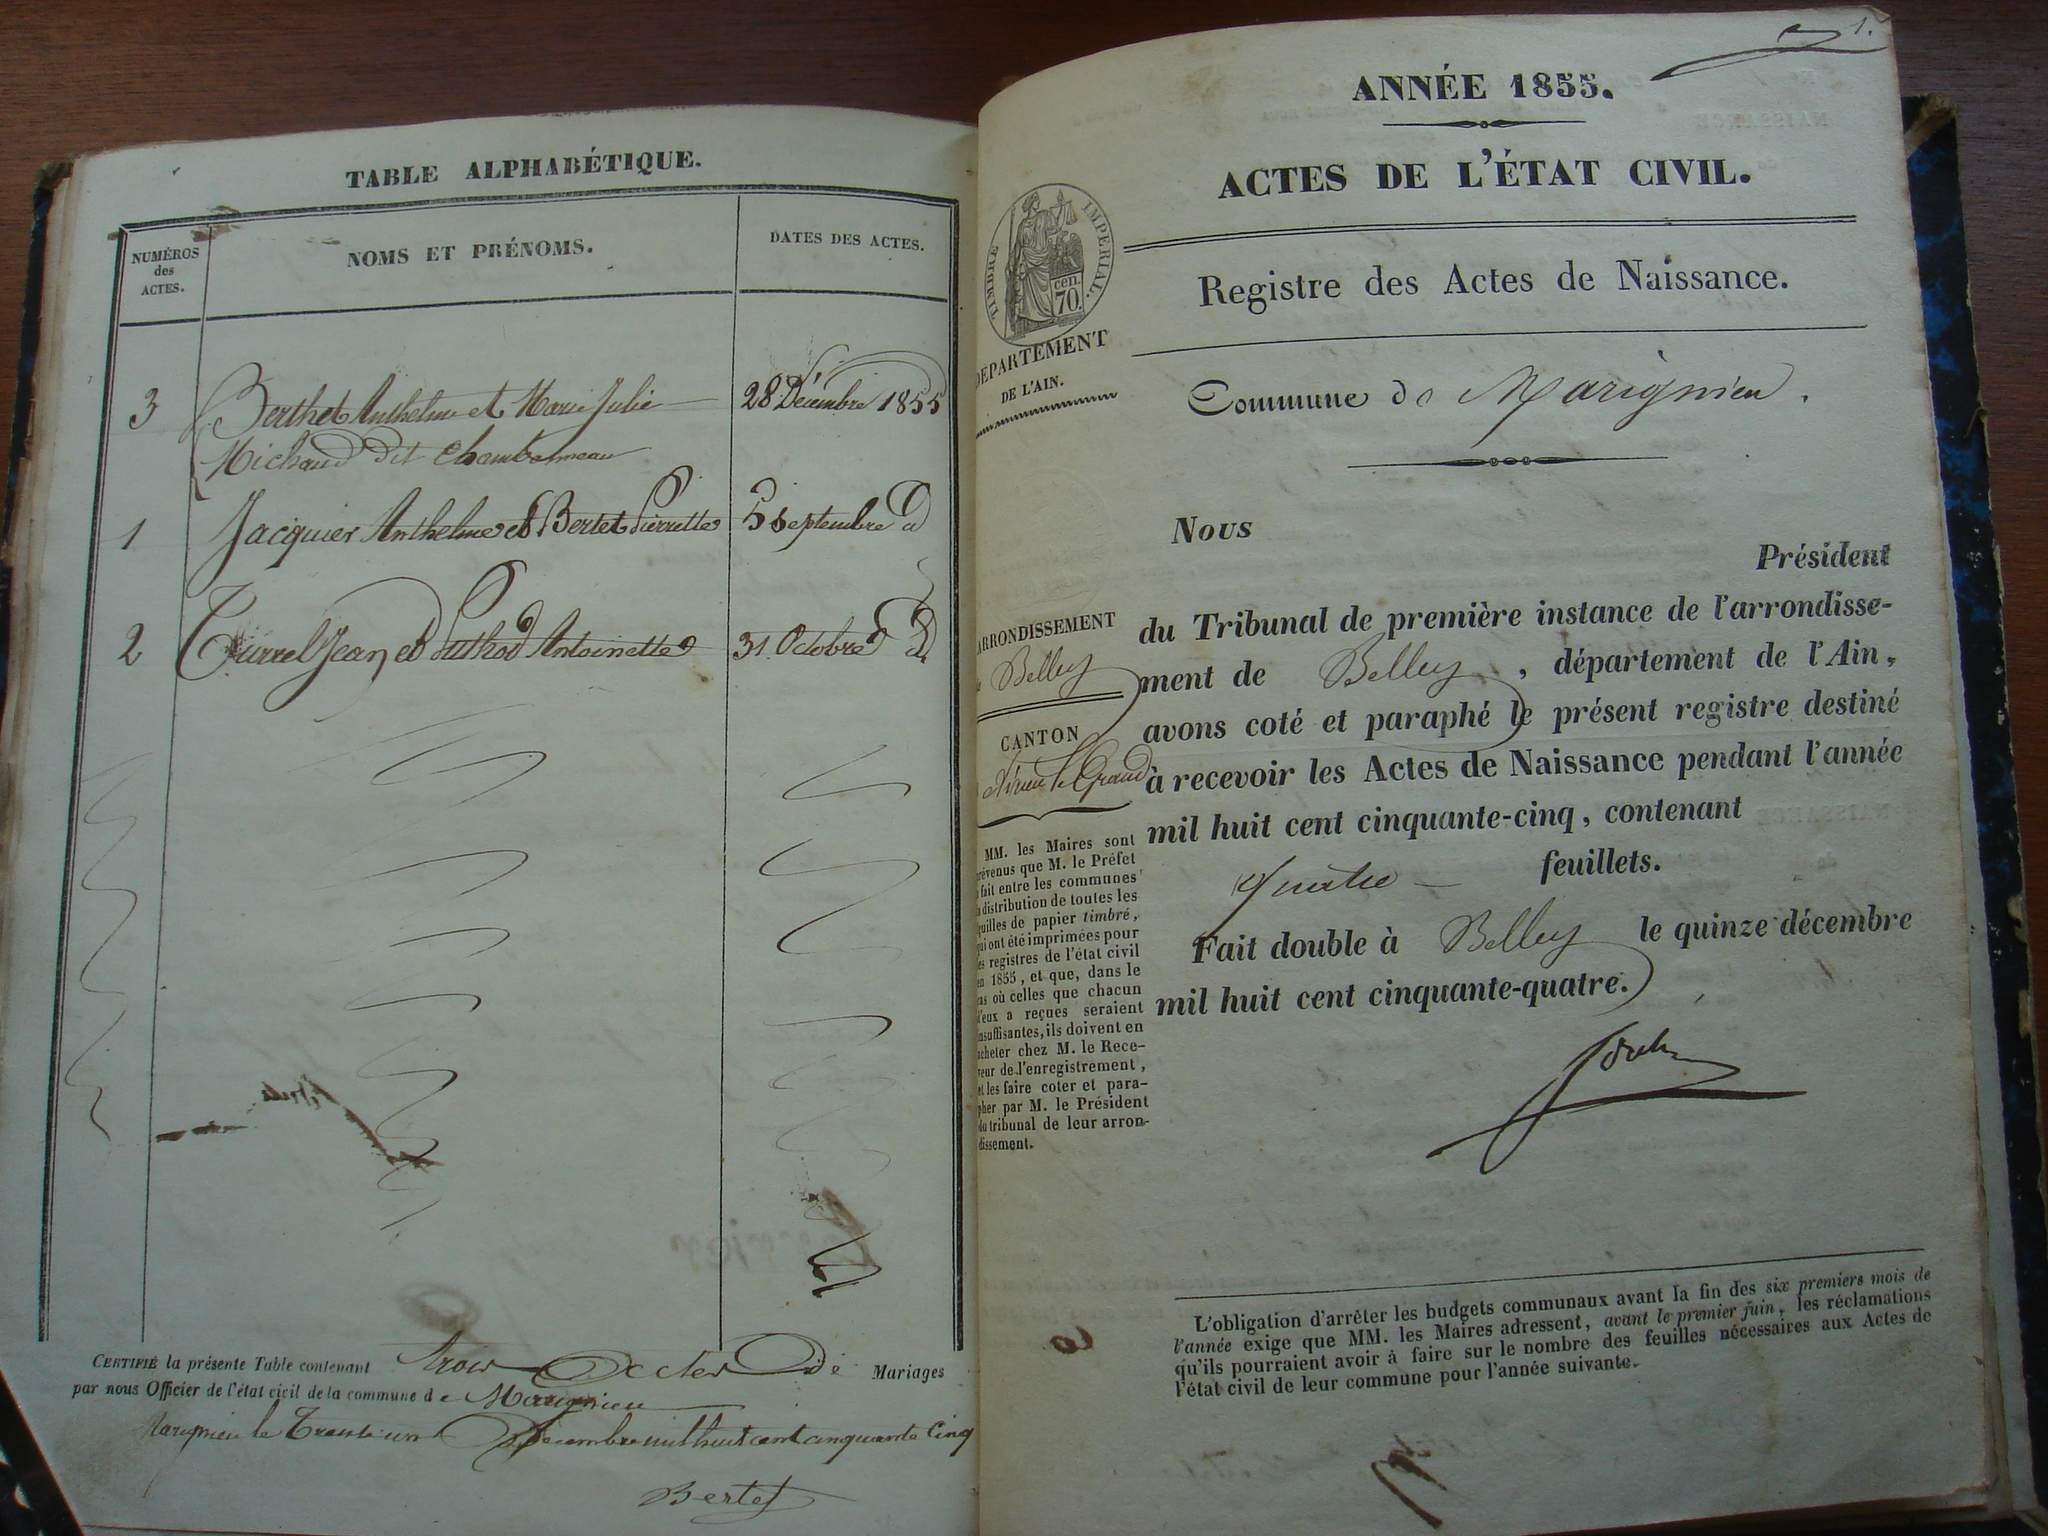 TABLE ALPHABÉTIQUE.
NUMÉROS
des
ACTES.
NOMS ET PRÉNOMS.
DATES DES ACTES.
3 Berthet Anthelme et Marie Julie 28 Décembre 1855
Michaud dit Chambonneau
1 Jacquier Anthelme et Bertet Pierrette 5 Septembre d
2 Turrel Jean et Suthod Antoinette 31 Octobre d
CERTIFIÉ la présente Table contenant trois Actes de Mariages
par nous Officier de l'état civil de la commune de Marignieu
Marignieu le Trente un Décembre mil huit cent cinquante Cinq
Bertet
1.
ANNÉE 1855.
ACTES DE L'ÉTAT CIVIL.
TIMBRE IMPÉRIAL.
cen.
70.
DEPARTEMENT
DE L'AIN.
Registre des Actes de Naissance.
Commune de Marignieu.
Nous
Président
du Tribunal de première instance de l'arrondisse-
ment de Belley, département de l'Ain,
avons coté et paraphé le présent registre destiné
à recevoir les Actes de Naissance pendant l'année
mil huit cent cinquante-cinq, contenant
quatre feuillets.
Fait double à Belley le quinze décembre
mil huit cent cinquante-quatre.
ARRONDISSEMENT
Belley
CANTON
Virieu le Grand
MM. les Maires sont
prévenus que M. le Préfet
a fait entre les communes
la distribution de toutes les
feuilles de papier timbré,
qui ont été imprimées pour
les registres de l'état civil
en 1855, et que, dans le
cas où celles que chacun
d'eux a reçues seraient
insuffisantes, ils doivent en
acheter chez M. le Rece-
veur de l'enregistrement,
et les faire coter et para-
pher par M. le Président
du tribunal de leur arron-
dissement.
L'obligation d'arrêter les budgets communaux avant la fin des six premiers mois de
l'année exige que MM. les Maires adressent, avant le premier juin, les réclamations
qu'ils pourraient avoir à faire sur le nombre des feuilles nécessaires aux Actes de
l'état civil de leur commune pour l'année suivante.